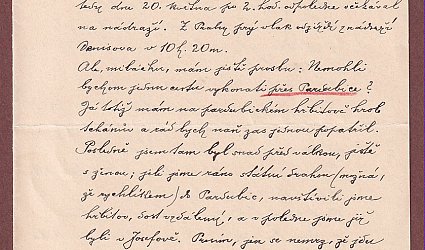 tedy dnu 20. května po 2. hod. odpoledne očekával
na nádraží. Z Prahy prý vlak odjíždí z nádraží
Denisova v 10 h. 20 m.
Ale, miláčku, mám ještě prosbu: Nemohli
bychom jednu cestu vykonati přes Pardubice?
Já totiž mám na pardubickém hřbitově hrob
a rád bych naň zas jednou popatřil.
Posledně jsem tam byl snad před válkou, ještě
s ; jeli jsme ráno státní drahou (myslím,
že rychlíkem) do Pardubic, navštívili jsme
hřbitov, dost vzdálený, a v poledne jsme již
byli v Josefově. Prosím, jen se nemrz, že jdu